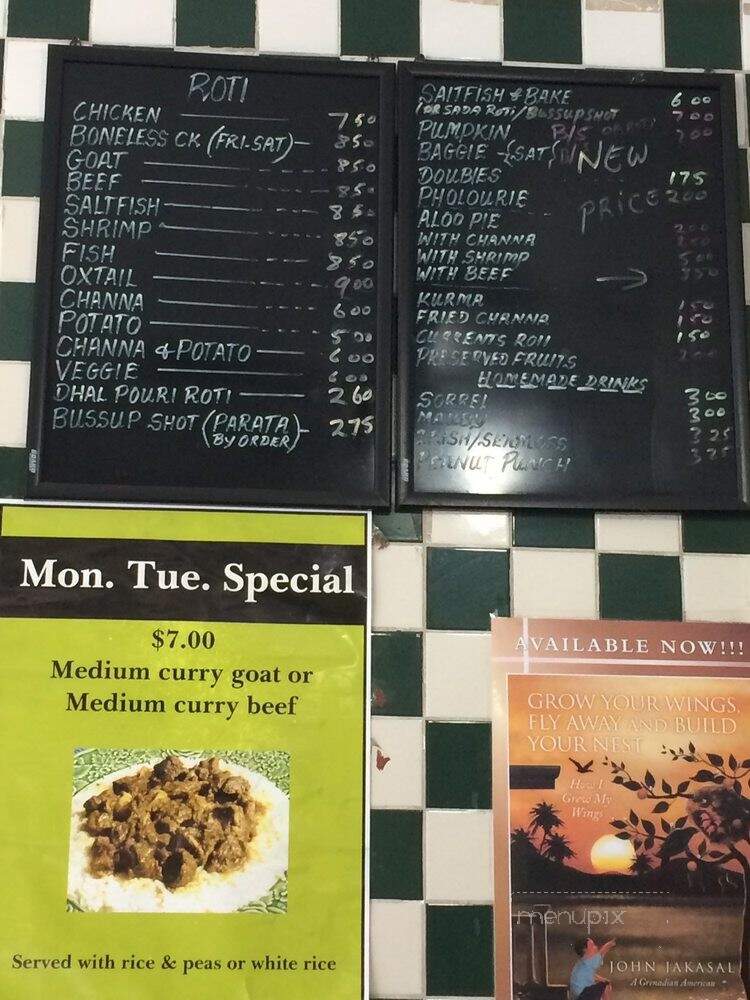 ROTI
CHICKEN 7 50
BONELESS CK (FRI-SAT) 850
GOAT 850
BEEF 850
SALTFISH 850
SHRIMP 850
FISH 850
OXTAIL 900
CHANNA 600
POTATO 500
CHANNA & POTATO 600
VEGGIE 600
DHAL POURI ROTI 260
BUSSUP SHOT (PARATA BY ORDER) 275
SAITFISH & BAKE 600
FOR SADA ROTI/BUSSUPSHOT 700
PUMPKIN
BAGGIE {SAT
NEW
PRICE
DOUBIES 175
PHOLOURIE 200
ALOO PIE
WITH CHANNA
WITH SHRIMP
WITH BEEF
KURMA 150
FRIED CHANNA 150
CURRENTS ROII 150
PRESERVED FRUITS
HOMEMADE DRINKS
SORREL 300
MAUBY 300
/SEAMOSS 325
PEANUT PUNCH 325
Mon. Tue. Special
$7.00
Medium curry goat or
Medium curry beef
Served with rice & peas or white rice
AVAILABLE NOW!!!
GROW YOUR WINGS,
FLY AWAY AND BUILD
YOUR NEST
How I
Grew My
Wings
menupix
JOHN JAKASAL
A Grenadian American